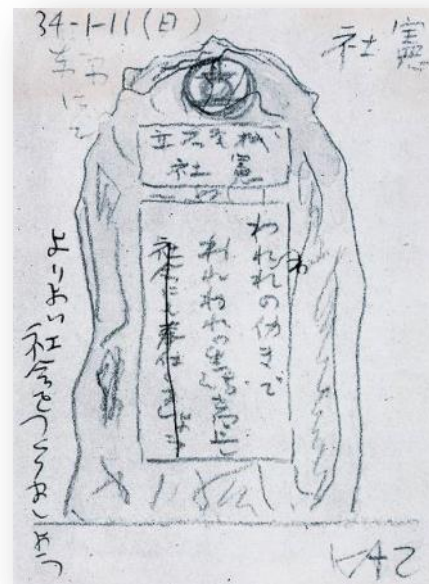 34-1-11(日)
社憲
立石電機
社憲
われわれの仂きで
われわれの生活を向上し
社会に奉仕しましょう
よりよい社会をつくりましょう